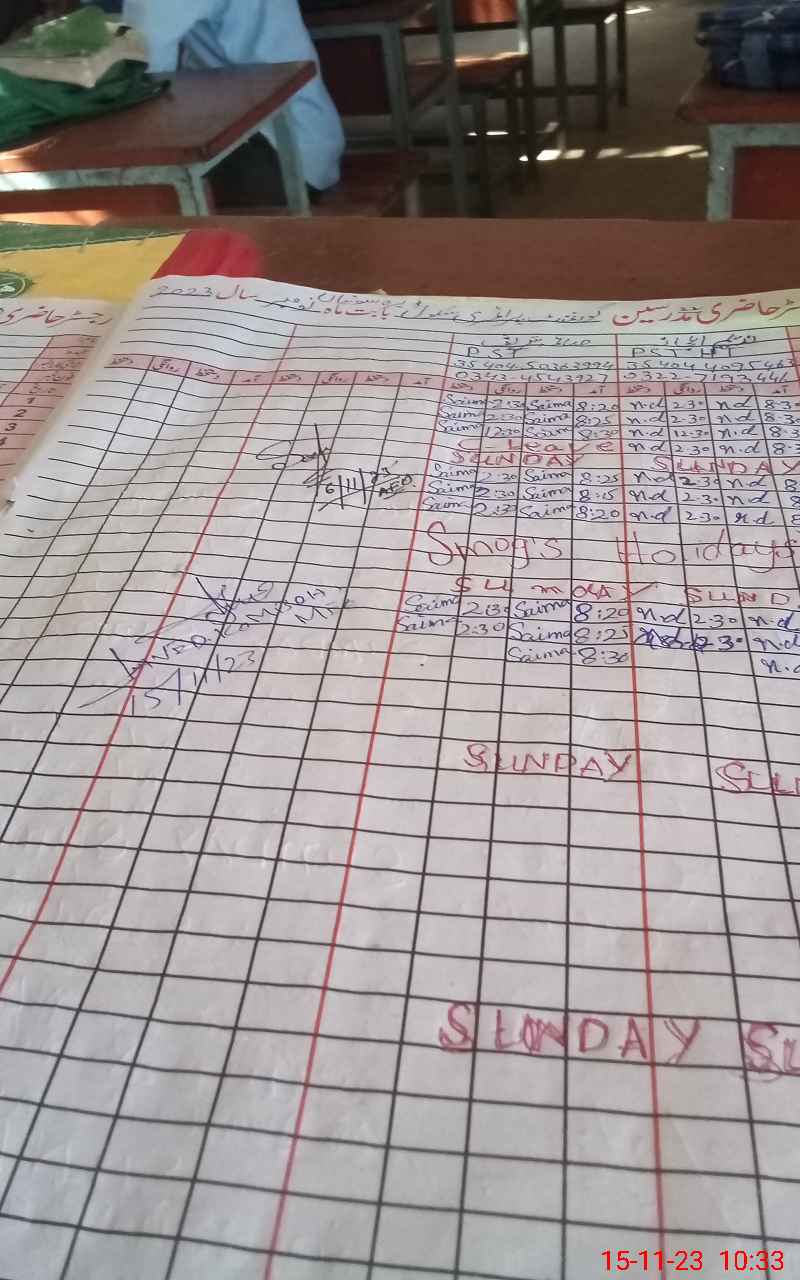 رجسٹر حاضری مدرسین بابت ماہ نومبر سال 2023
رجسٹر حاضری
PST PST HT
دستخط روانگی دستخط آمد دستخط روانگی دستخط آمد دستخط روانگی دستخط آمد دستخط روانگی دستخط آمد
1
2
3
4
Saima 2:30 Saima 8:20 n.d 2:30 n.d 8:3
Saima 2:30 Saima 8:25 n.d 2:30 n.d 8:3
Saima 12:30 Saima 8:30 n.d 12:30 n.d 8:3
C Leave n.d 2:30 n.d 8:3
SUNDAY SUNDAY
Saima 2:30 Saima 8:25 n.d 2:30 n.d 8
Saima 2:30 Saima 8:15 n.d 2:30 n.d 8
Saima 2:30 Saima 8:20 n.d 2:30 n.d 8
6/11/23
AEO
Smog's Holidays
SUNDAY SUND
Saima 2:30 Saima 8:20 n.d 2:30 n.d
Saima 2:30 Saima 8:25 2:30 n.d
Saima 8:30 n.d
15/11/23
SUNDAY SU
SUNDAY SU
15-11-23 10:33